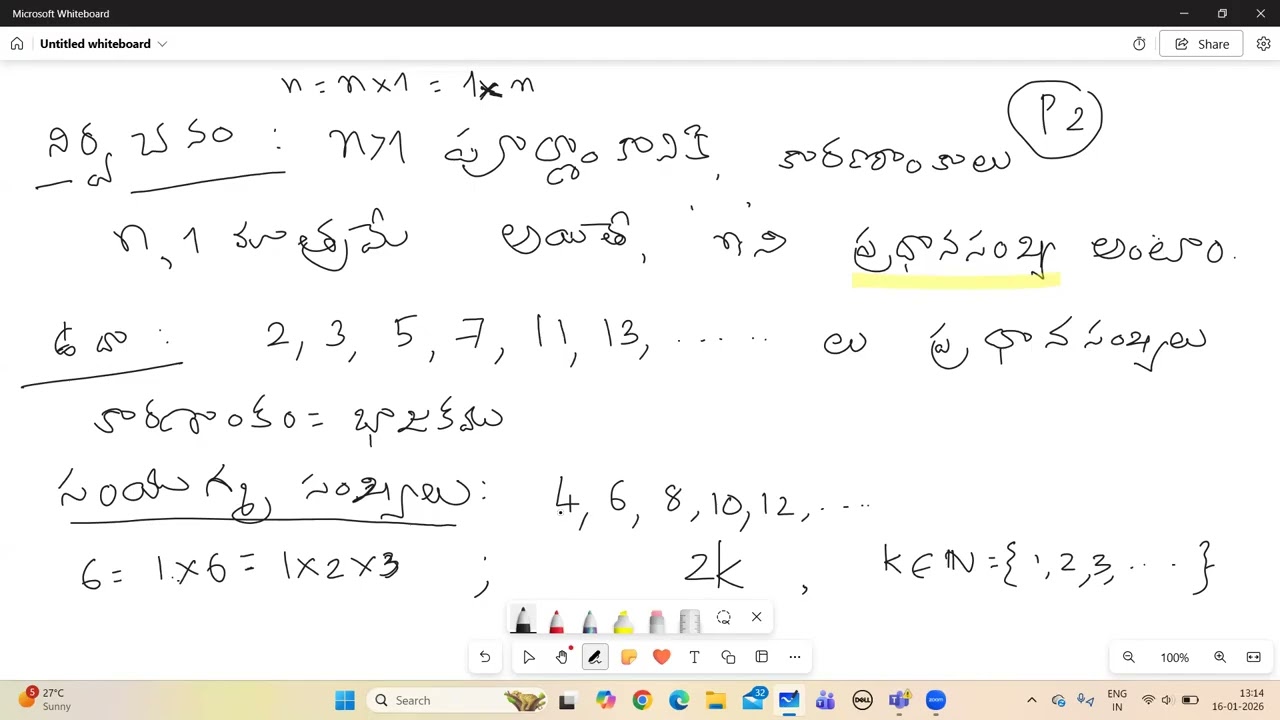 Microsoft Whiteboard
Untitled whiteboard
Share
n = n×1 = 1×n
P2
నిర్వచనం : n>1 పూర్ణాంకానికి, కారణాంకాలు
n, 1 మాత్రమే అయితే, n ని ప్రధానసంఖ్య అంటాం.
ఉదా : 2, 3, 5, 7, 11, 13, ...... లు ప్రధానసంఖ్యలు
కారణాంకం = భాజకము
సంయుక్త సంఖ్యలు : 4, 6, 8, 10, 12, ....
6 = 1×6 = 1×2×3 ; 2k, k∈ℕ = {1, 2, 3, .....}
100%
5
27°C
Sunny
Search
32
DELL
zoom
ENG
IN
13:14
16-01-2026